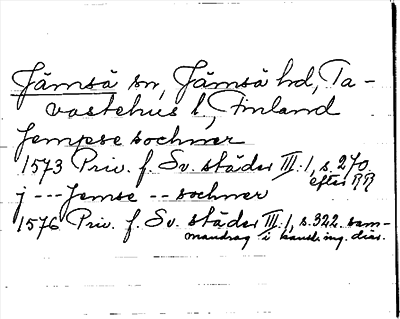 Jämsä sn, Jämsä hd, Ta-
vastehus l, Finland
Jempse sochner
1573 Priv. f. Sv. städer III:1, s. 270,
efter RR
j --- Jemse -- sochner
1576 Priv. f. Sv. städer III:1, s. 322. sam-
mandrag i kansl. ing. diar.